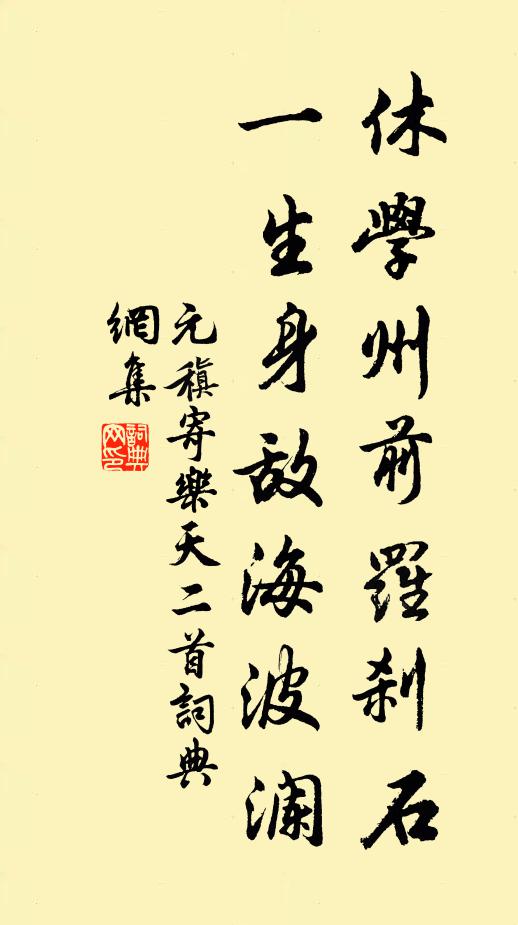 休學州前羅刹石
一生身敵海波澜
元稹寄樂天二首詞典
網集
詞典
网印